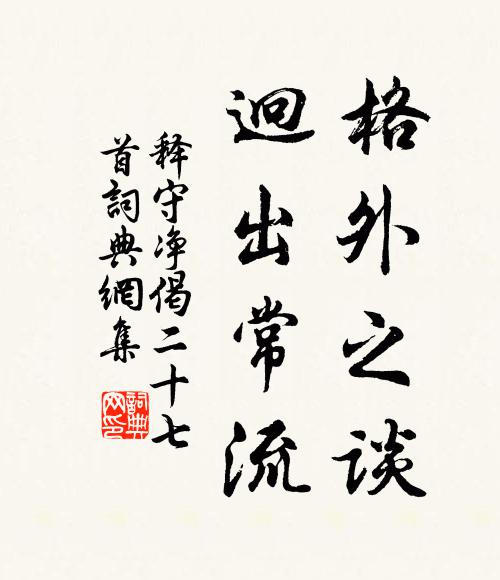 格外之谈
迥出常流
释守净偈二十七
首詞典網集
詞典网印